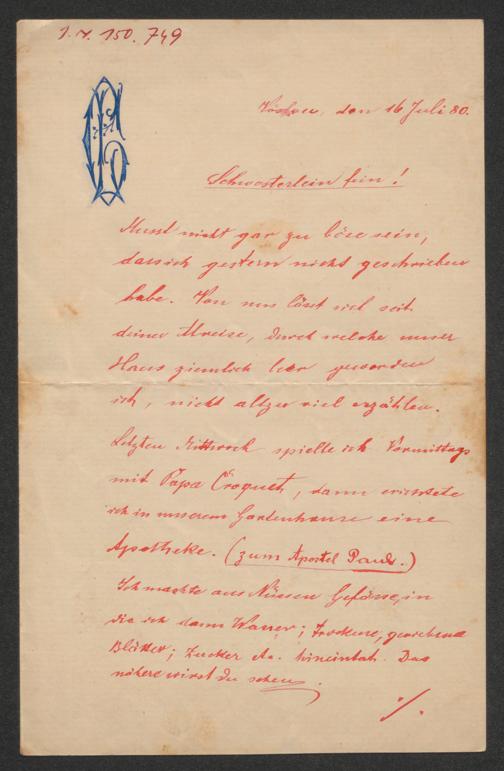 J. N. 150.749
Vöslau, den 16 Juli 80.
Schwesterlein fein!
Musst nicht gar zu böse sein,
dass ich gestern nicht geschrieben
habe. Von uns lässt sich seit
deiner Abreise, durch welche unser
Haus ziemlich leer geworden
ist, nicht allzu viel erzählen.
Letzten Mittwoch spielte ich Vormittags
mit Papa Croquet, dann errichtete
ich in unserem Gartenhause eine
Apotheke. (zum Apostel Paul.)
Ich machte aus Nüssen Gefässe, in
die ich dann Wasser; trockene, geriebene
Blätter; Zucker etc. hineintat. Das
nähere wirst du sehen.
./.